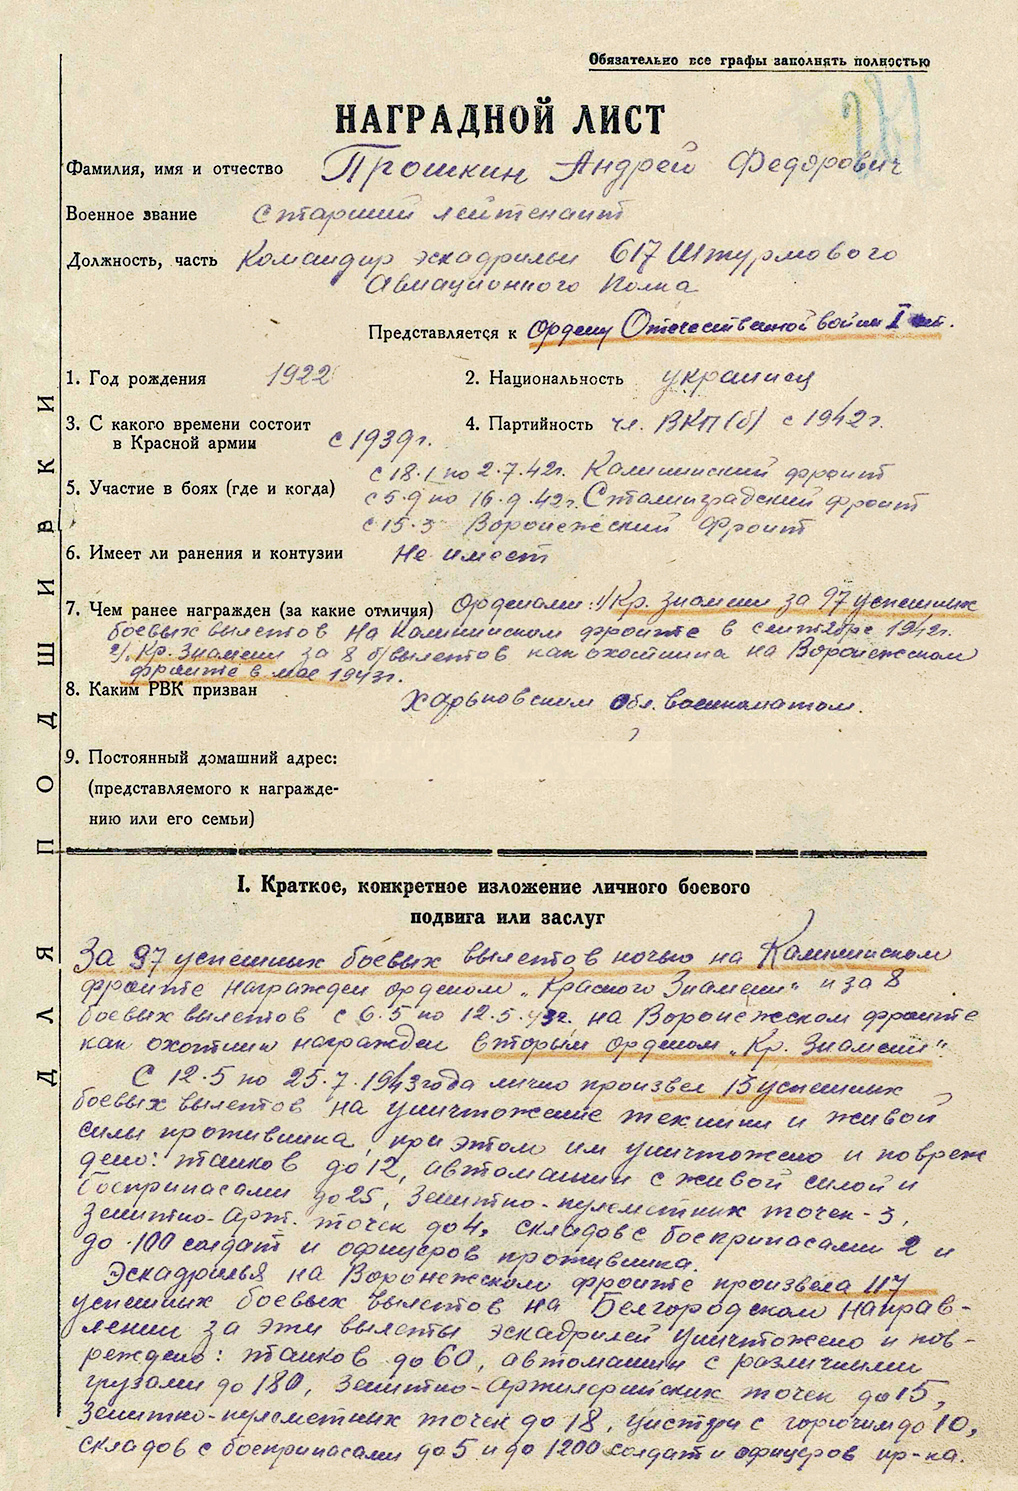 Обязательно все графы заполнять полностью
НАГРАДНОЙ ЛИСТ
Фамилия, имя и отчество Прошкин Андрей Федорович
Военное звание Старший лейтенант
Должность, часть Командир эскадрильи 617 Штурмового
Авиационного Полка
Представляется к Ордену Отечественной войны I ст.
1. Год рождения 1922 2. Национальность украинец
3. С какого времени состоит
в Красной армии с 1939г. 4. Партийность чл. ВКП(б) с 1942г.
с 18.1 по 2.7.42г. Калининский фронт
5. Участие в боях (где и когда) с 5.9 по 16.9.42г. Сталинградский фронт
с 15.3 Воронежский фронт
6. Имеет ли ранения и контузии Не имеет
7. Чем ранее награжден (за какие отличия) Орденами: 1/Кр. Знамени за 97 успешных
боевых вылетов на Калининском фронте в сентябре 1942г.
2/. Кр. Знамени за 8 б/вылетов как охотника на Воронежском
фронте в мае 1943г.
8. Каким РВК призван Харьковским Обл. военкоматом.
9. Постоянный домашний адрес:
(представляемого к награжде-
нию или его семьи)
ДЛЯ ПОДШИВКИ
I. Краткое, конкретное изложение личного боевого
подвига или заслуг
За 97 успешных боевых вылетов ночью на Калининском
фронте награжден орденом „Красного Знамени" и за 8
боевых вылетов с 6.5 по 12.5.43г. на Воронежском фронте
как охотник награжден вторым орденом „Кр. Знамени"
С 12.5 по 25.7.1943 года лично произвел 15 успешных
боевых вылетов на уничтожение техники и живой
силы противника, при этом им уничтожено и повреж
дено: танков до 12, автомашин с живой силой и
боеприпасами до 25, зенитно-пулеметных точек - 3,
зенитно-арт. точек до 4, складов с боеприпасами 2 и
до 100 солдат и офицеров противника.
Эскадрилья на Воронежском фронте произвела 117
успешных боевых вылетов на Белгородском направ-
лении за эти вылеты эскадрилей уничтожено и пов-
реждено: танков до 60, автомашин с различными
грузами до 180, зенитно-артилерийских точек до 15,
зенитно-пулеметных точек до 18, цистерн с горючим до 10,
складов с боеприпасами до 5 и до 1200 солдат и офицеров пр-ка.